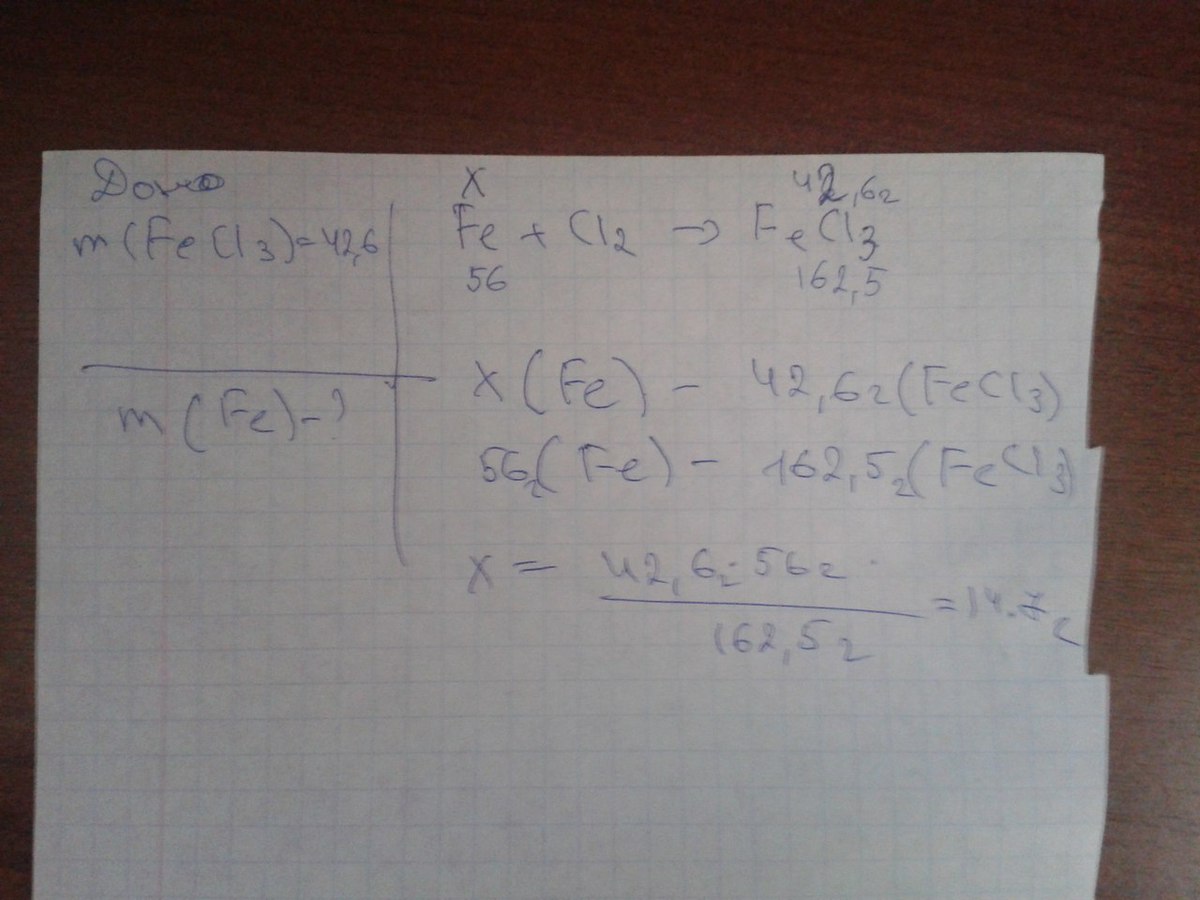 Дано
m(FeCl3)=42,6
m(Fe)-?
x 42,6г
Fe + Cl2 → FeCl3
56 162,5
x(Fe) - 42,6г(FeCl3)
56г(Fe) - 162,5г(FeCl3)
x = 42,6г·56г
162,5г
=14.7г